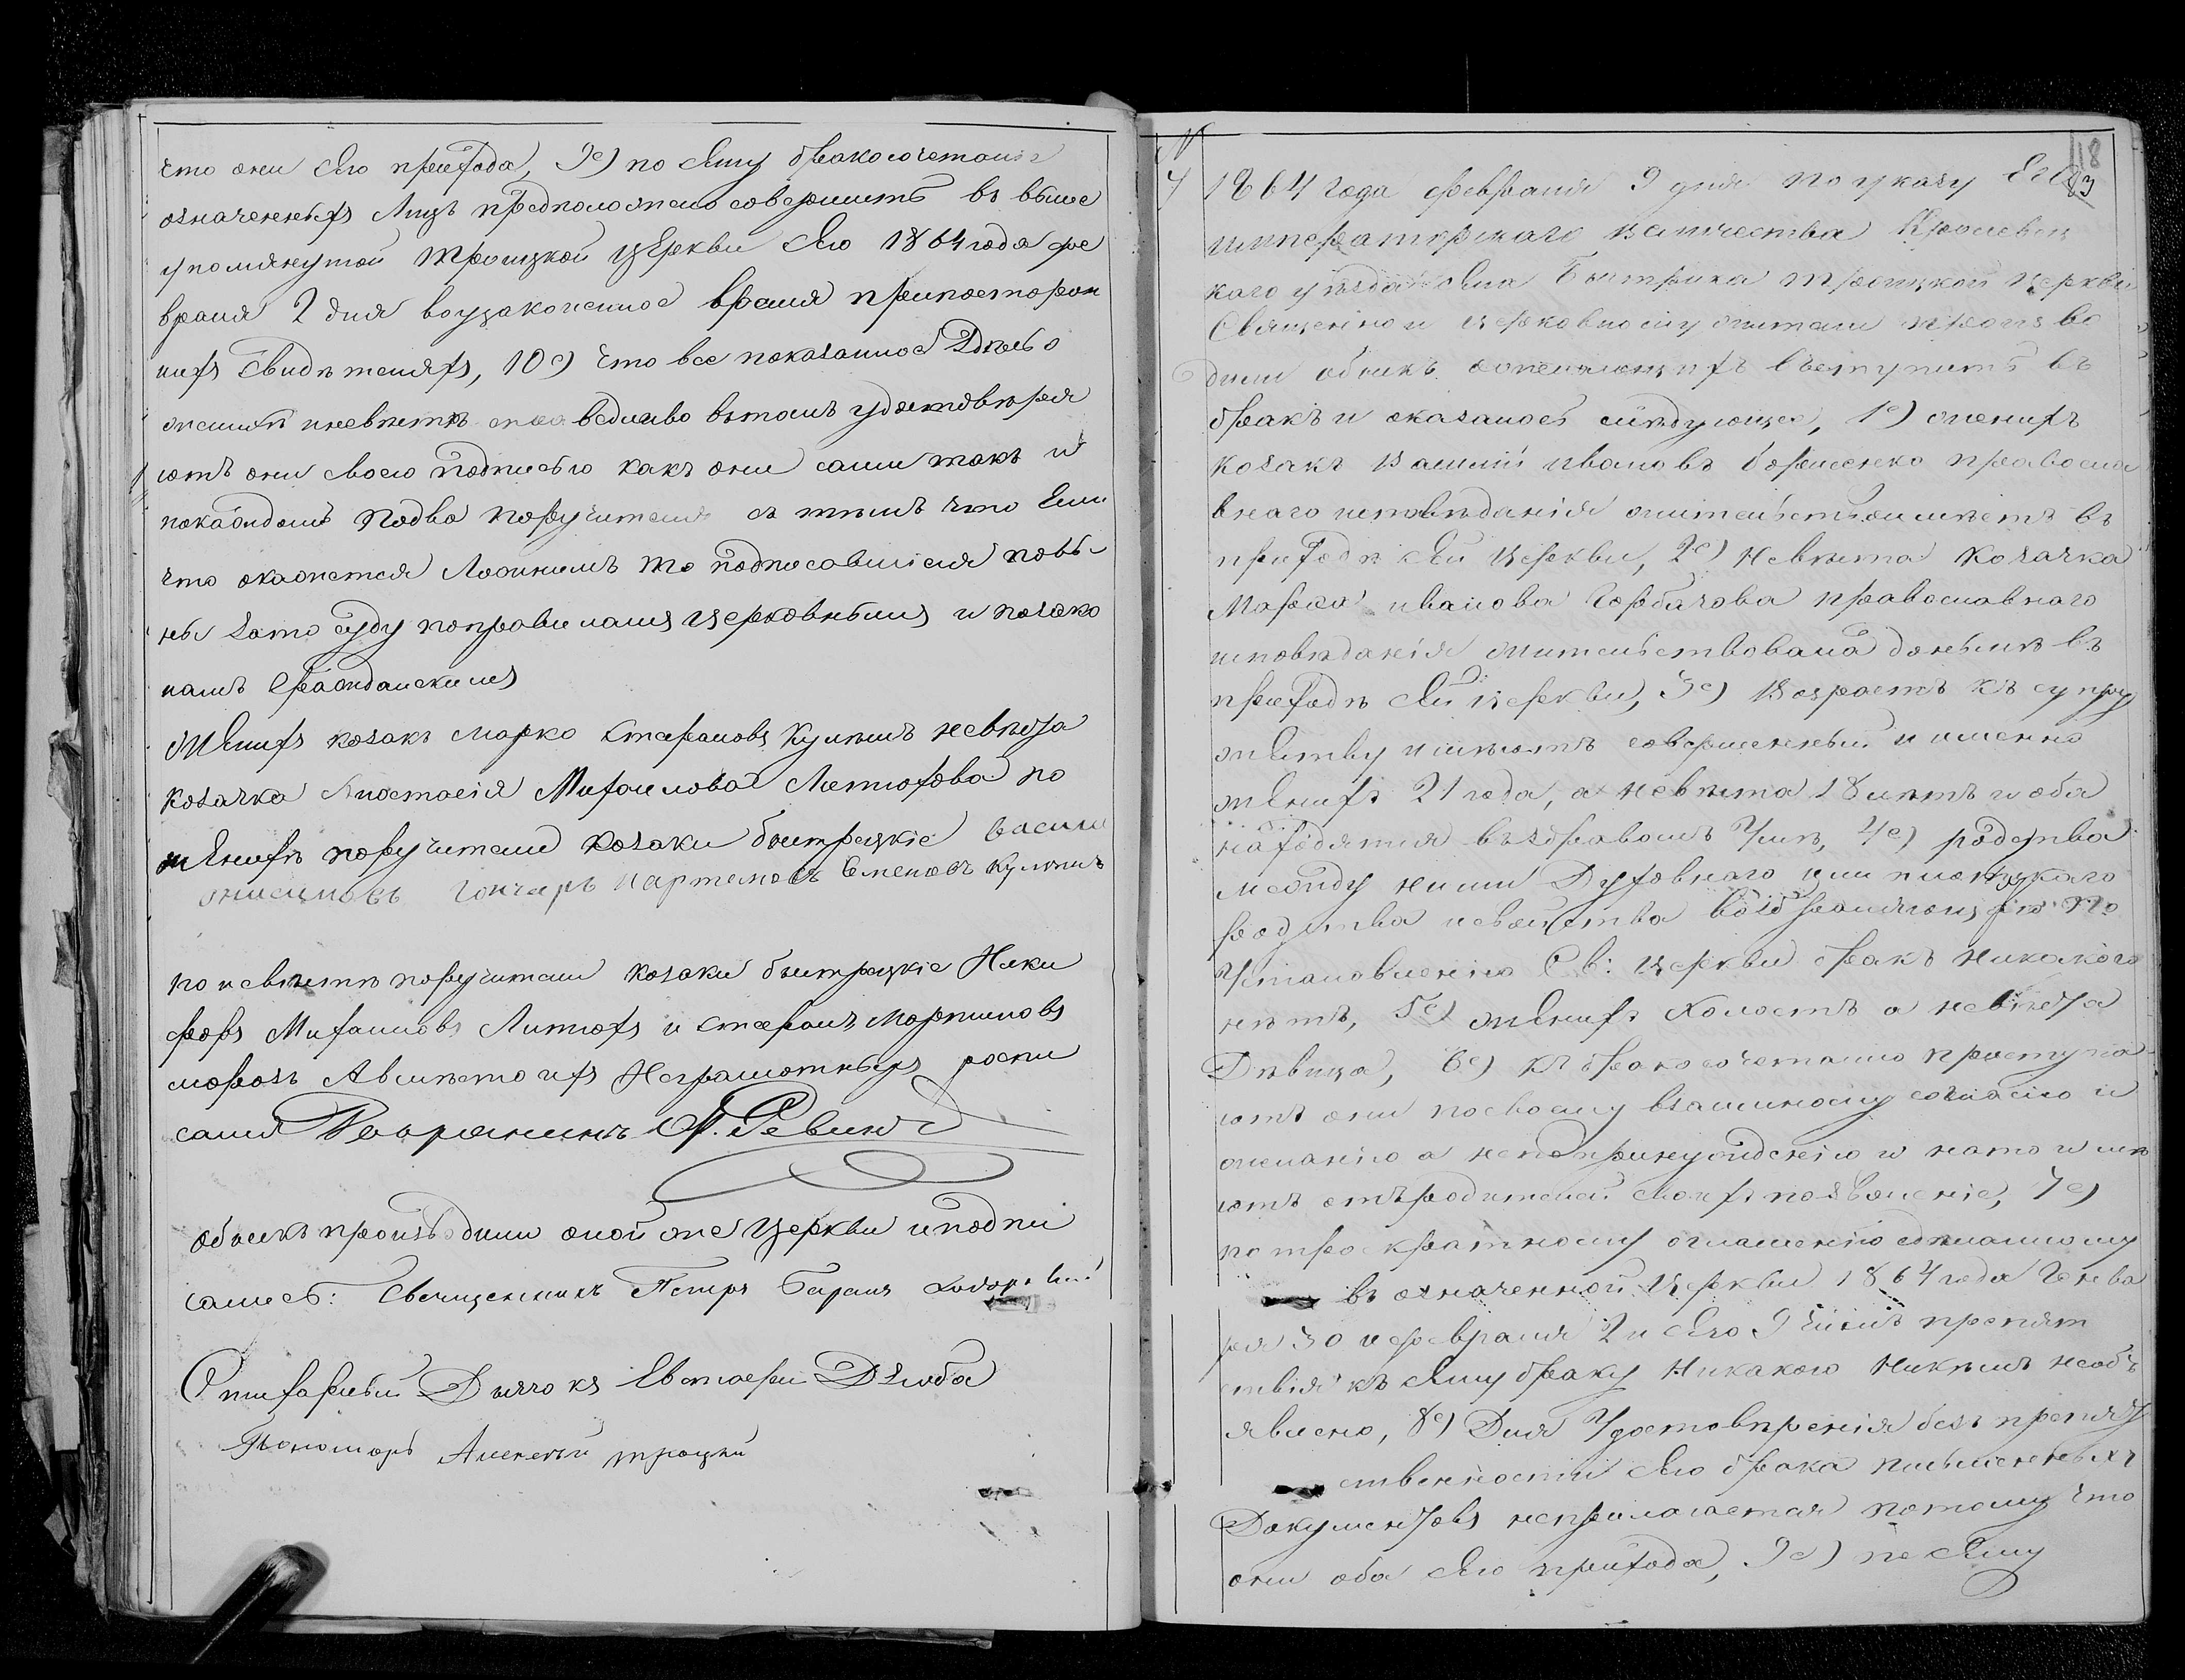 что они сего прихода, 9е) по сему бракосочетание
означенныхъ лицъ предположено совершить въ выше
упомянутой Троицкой Церкви сего 1864 года фе
враля 2 дня воузаконенное время припосторон
нихъ Свидѣтеляхъ, 10е) что все показанное здѣсь о
женихѣ иневѣстѣ справедливо вътомъ удостовѣря
ютъ они своею подписью какъ они сами такъ и
покаждомъ подва поручителя съ тѣмъ что Если
что окажется Ложнымъ то подписавшіеся повы
ны зато суду поправиламъ церковнымъ и позако
намъ Гражданскимъ
Женихъ козакъ Марко Стефановъ Кулишъ невѣста
козачка Анастасія Михаилова Литюхова по
женихѣ поручители козаки быстрицкіе Васили
Гончаръ Партемовъ Семеновъ Кулишъ
по невѣстѣ поручители козаки быстрицкіе Ники
форъ Михаиловъ Литюхъ и Стефанъ Мартиновъ
морозъ Авмѣсто ихъ Неграмотныхъ роспи
сался Дворянинъ П. Ревинъ
обыскъ производили оной же Церкви иподпи
сались: Священникъ Петръ Баранъ
Стихарный Дьячокъ Евстафи Дзюба
Пономарь Алексѣй троцкій
118
83
N
4
1864 года февраля 9 дня по указу Его
императорскаго величества Кролевец
каго уѣзда села Быстрика троицкой церкви
Священно и церковнослужители произво
дили обыскъ ожелающихъ вступить въ
бракъ и оказалось слѣдующее, 1е) женихъ
козакъ Василій ивановъ борисенко правосла
внаго исповѣданія жительство имѣетъ въ
приходѣ сей Церкви, 2е) невѣста козачка
Марфа иванова Горбачова православнаго
исповѣданія жительствовала донынѣ въ
приходѣ сей церкви, 3е) возрастъ къ супру
жеству имѣютъ совершенный и именно
женихъ 21 года, а невѣста 18 лѣтъ и оба
находятся въздравомъ умѣ, 4е) родства
между ними Духовнаго или плотскаго
родства исвойства возбраняющаго по
установленію Св: церкви бракъ никакого
нѣтъ, 5е) женихъ Холостъ а невѣста
Дѣвица, 6е) къ бракосочетанію приступа
ютъ они посвоему взаимному согласію и
желанію а непопринужденію и нато имѣ
ютъ отъродителей своихъ позволеніе, 7е)
по троекратному оглашенію сдѣланному
въ означенной церкви 1864 года Генва
ря 30 и февраля 2 и сего 9 чиселъ препят
ствія къ сему браку никакого никѣмъ необъ
явлено, 8е) Для удостовѣренія безъ препят
ственности сего брака письменныхъ
Документовъ неприлогается потому что
они оба сего прихода, 9е) по сему